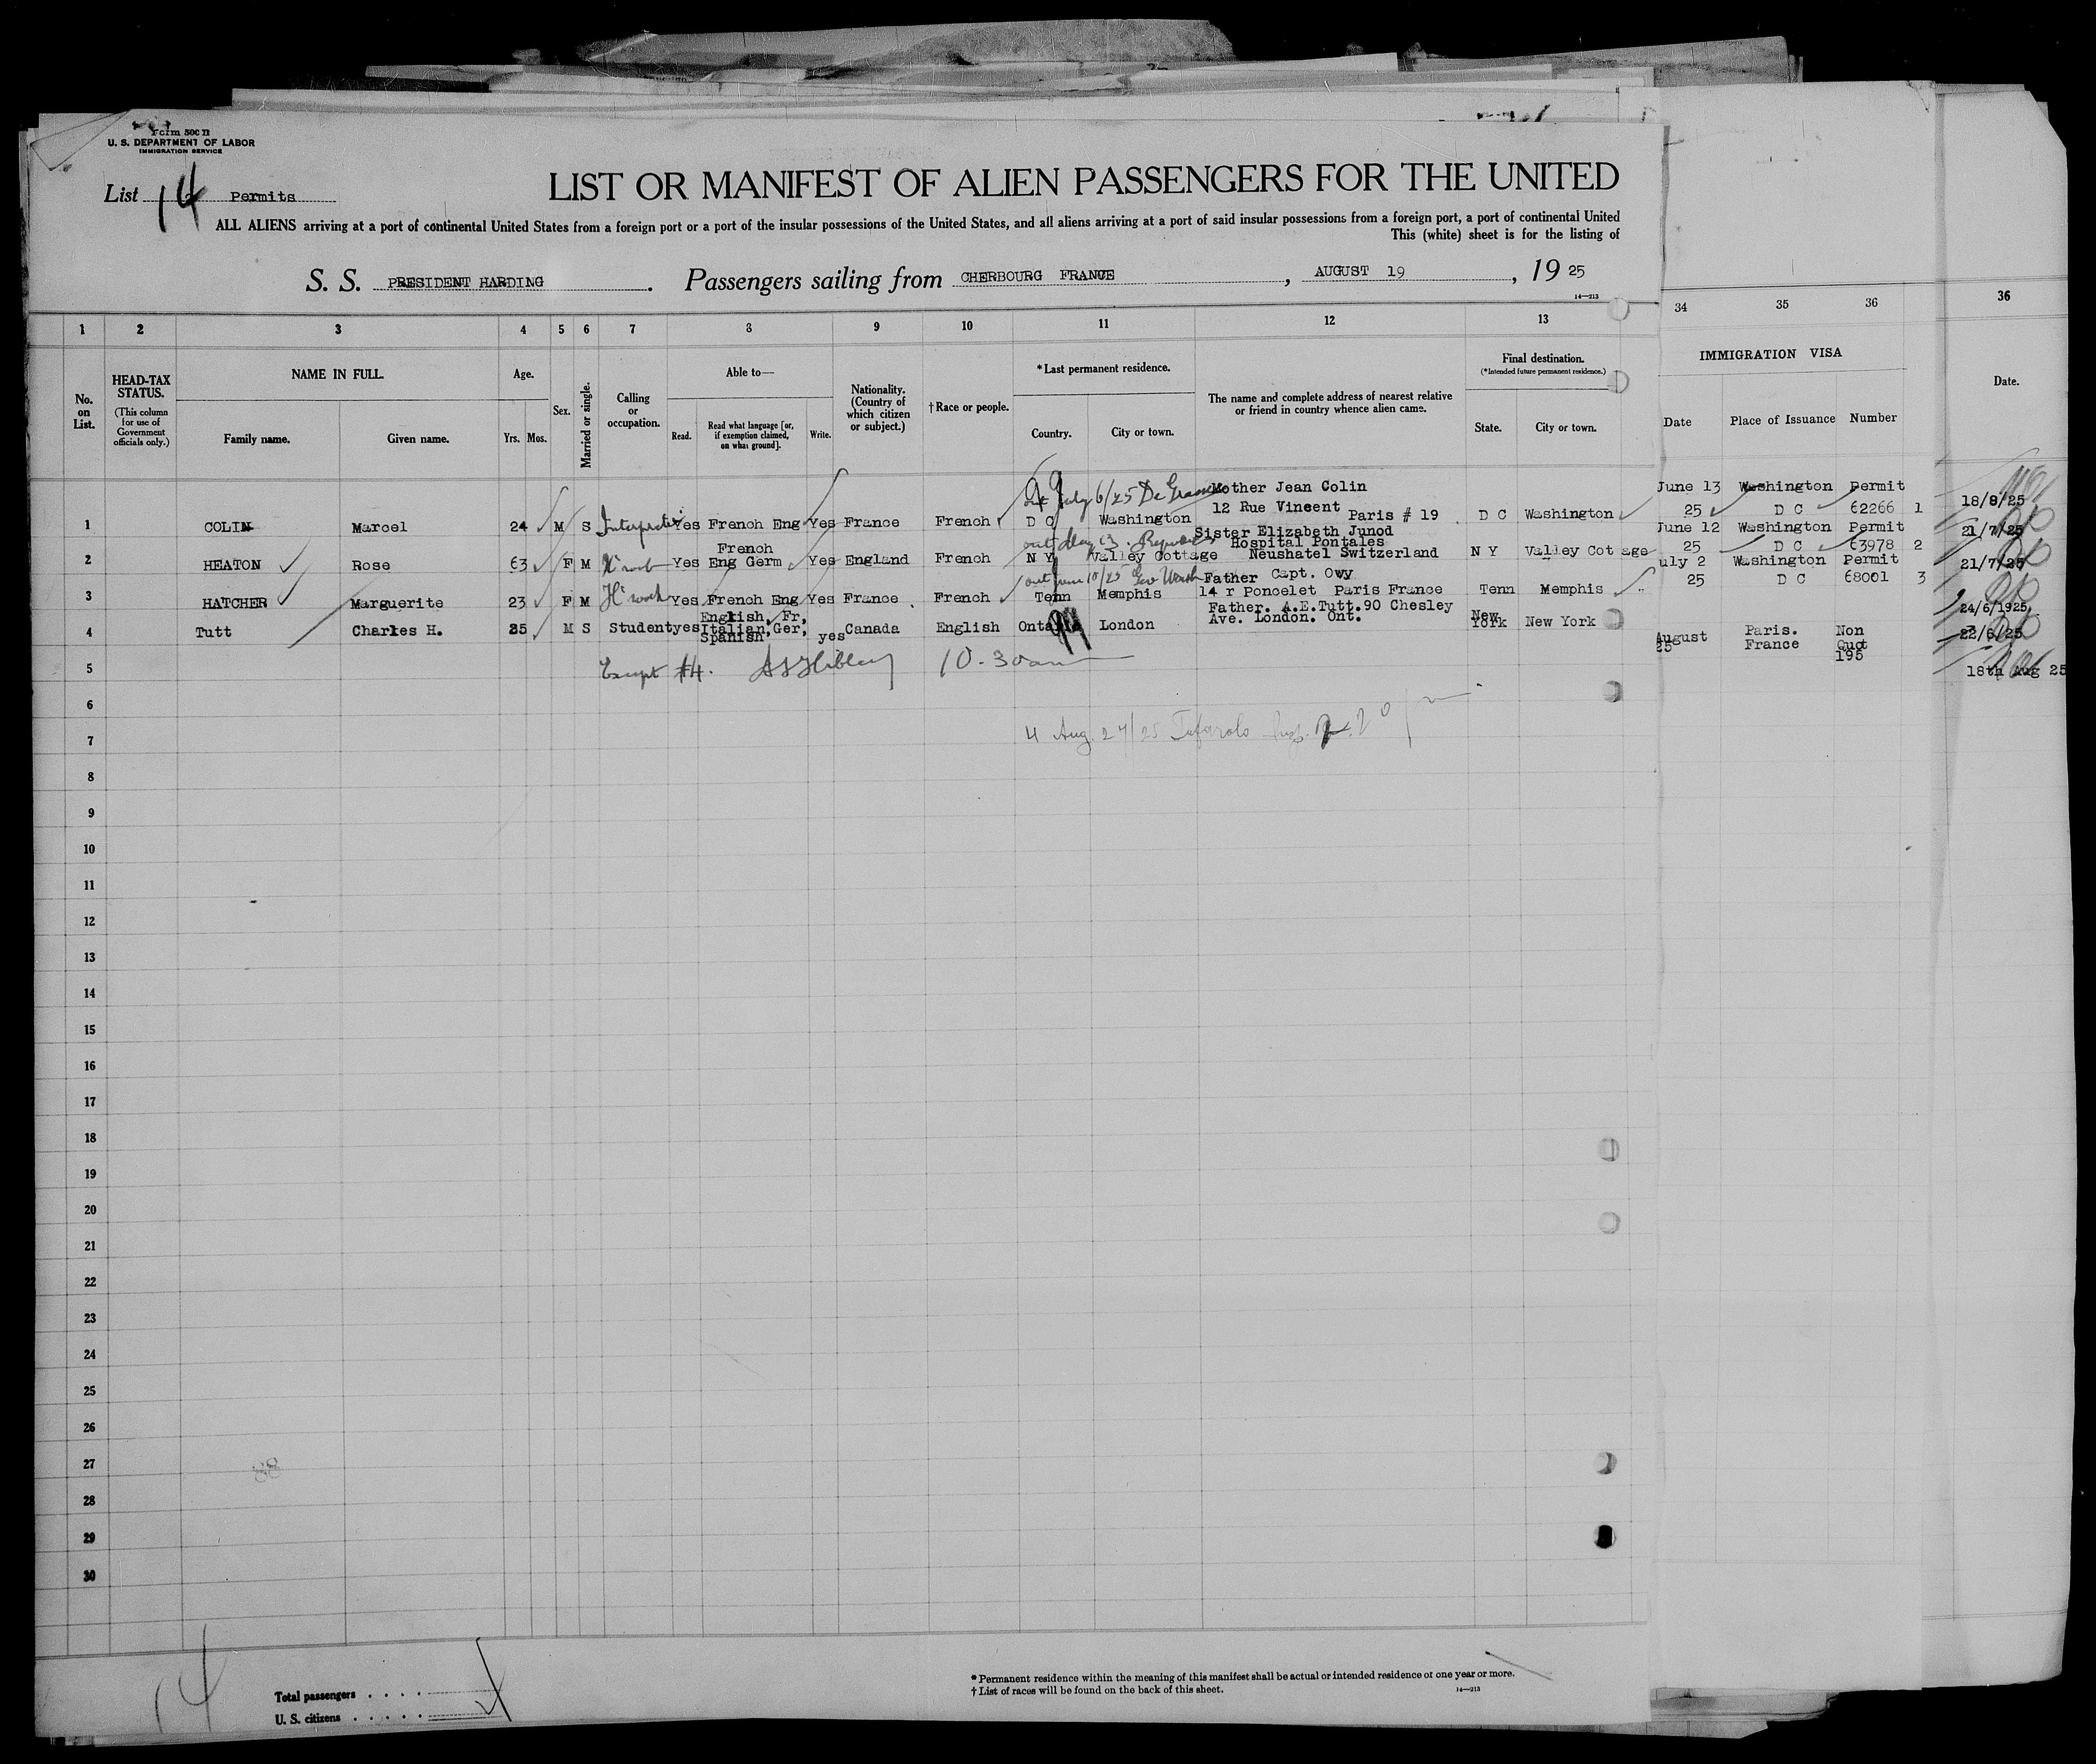 Form 500 B
U. S. DEPARTMENT OF LABOR
IMMIGRATION SERVICE
List 14 Permits
LIST OR MANIFEST OF ALIEN PASSENGERS FOR THE UNITED
ALL ALIENS arriving at a port of continental United States from a foreign port or a port of the insular possessions of the United States, and all aliens arriving at a port of said insular possessions from a foreign port, a port of continental United
This (white) sheet is for the listing of
S. S. PRESIDENT HARDING. Passengers sailing from CHERBOURG FRANCE, AUGUST 19, 19 25
14—213
1 2 3 4 5 6 7 8 9 10 11 12 13 34 35 36 36
No. on List.
HEAD-TAX STATUS.
(This column for use of Government officials only.)
NAME IN FULL.
Family name. Given name.
Age.
Yrs. Mos.
Sex.
Married or single.
Calling or occupation.
Able to—
Read. Read what language [or, if exemption claimed, on what ground]. Write.
Nationality. (Country of which citizen or subject.)
†Race or people.
*Last permanent residence.
Country. City or town.
The name and complete address of nearest relative or friend in country whence alien came.
Final destination.
(*Intended future permanent residence.)
State. City or town.
IMMIGRATION VISA
Date Place of Issuance Number
Date.
out July 6/25 De Grasse Mother Jean Colin June 13 Washington Permit
1 COLIN Marcel 24 M S Interpreter Yes French Eng Yes France French D C Washington 12 Rue Vincent Paris # 19 D C Washington 25 D C 62266 1 18/8/25
out May 13 Sister Elizabeth Junod June 12 Washington Permit 21/7/25
2 HEATON Rose 63 F M H'work Yes French Eng Germ Yes England French N Y Valley Cottage Hospital Pontales Neushatel Switzerland N Y Valley Cot age 25 D C 63978 2
out June 10/25 Geo Wash Father Capt. Ovy uly 2 Washington Permit 21/7/25
3 HATCHER Marguerite 23 F M H'work Yes French Eng Yes France French Tenn Memphis 14 r Poncelet Paris France Tenn Memphis 25 D C 68001 3
24/6/1925,
4 Tutt Charles H. 25 M S Student yes English, Fr, Italian, Ger, Spanish yes Canada English Ontario London Father. A.E.Tutt.90 Chesley Ave. London. Ont. New York New York August 25 Paris. France Non Quot 195 22/6/25
5 Except #4. 10.30am 18th Aug 25
6
7 4 Aug. 27/25
8
9
10
11
12
13
14
15
16
17
18
19
20
21
22
23
24
25
26
27
88
28
29
30
14
Total passengers . . . .
U. S. citizens . . . . .
* Permanent residence within the meaning of this manifest shall be actual or intended residence of one year or more.
† List of races will be found on the back of this sheet.
14—213